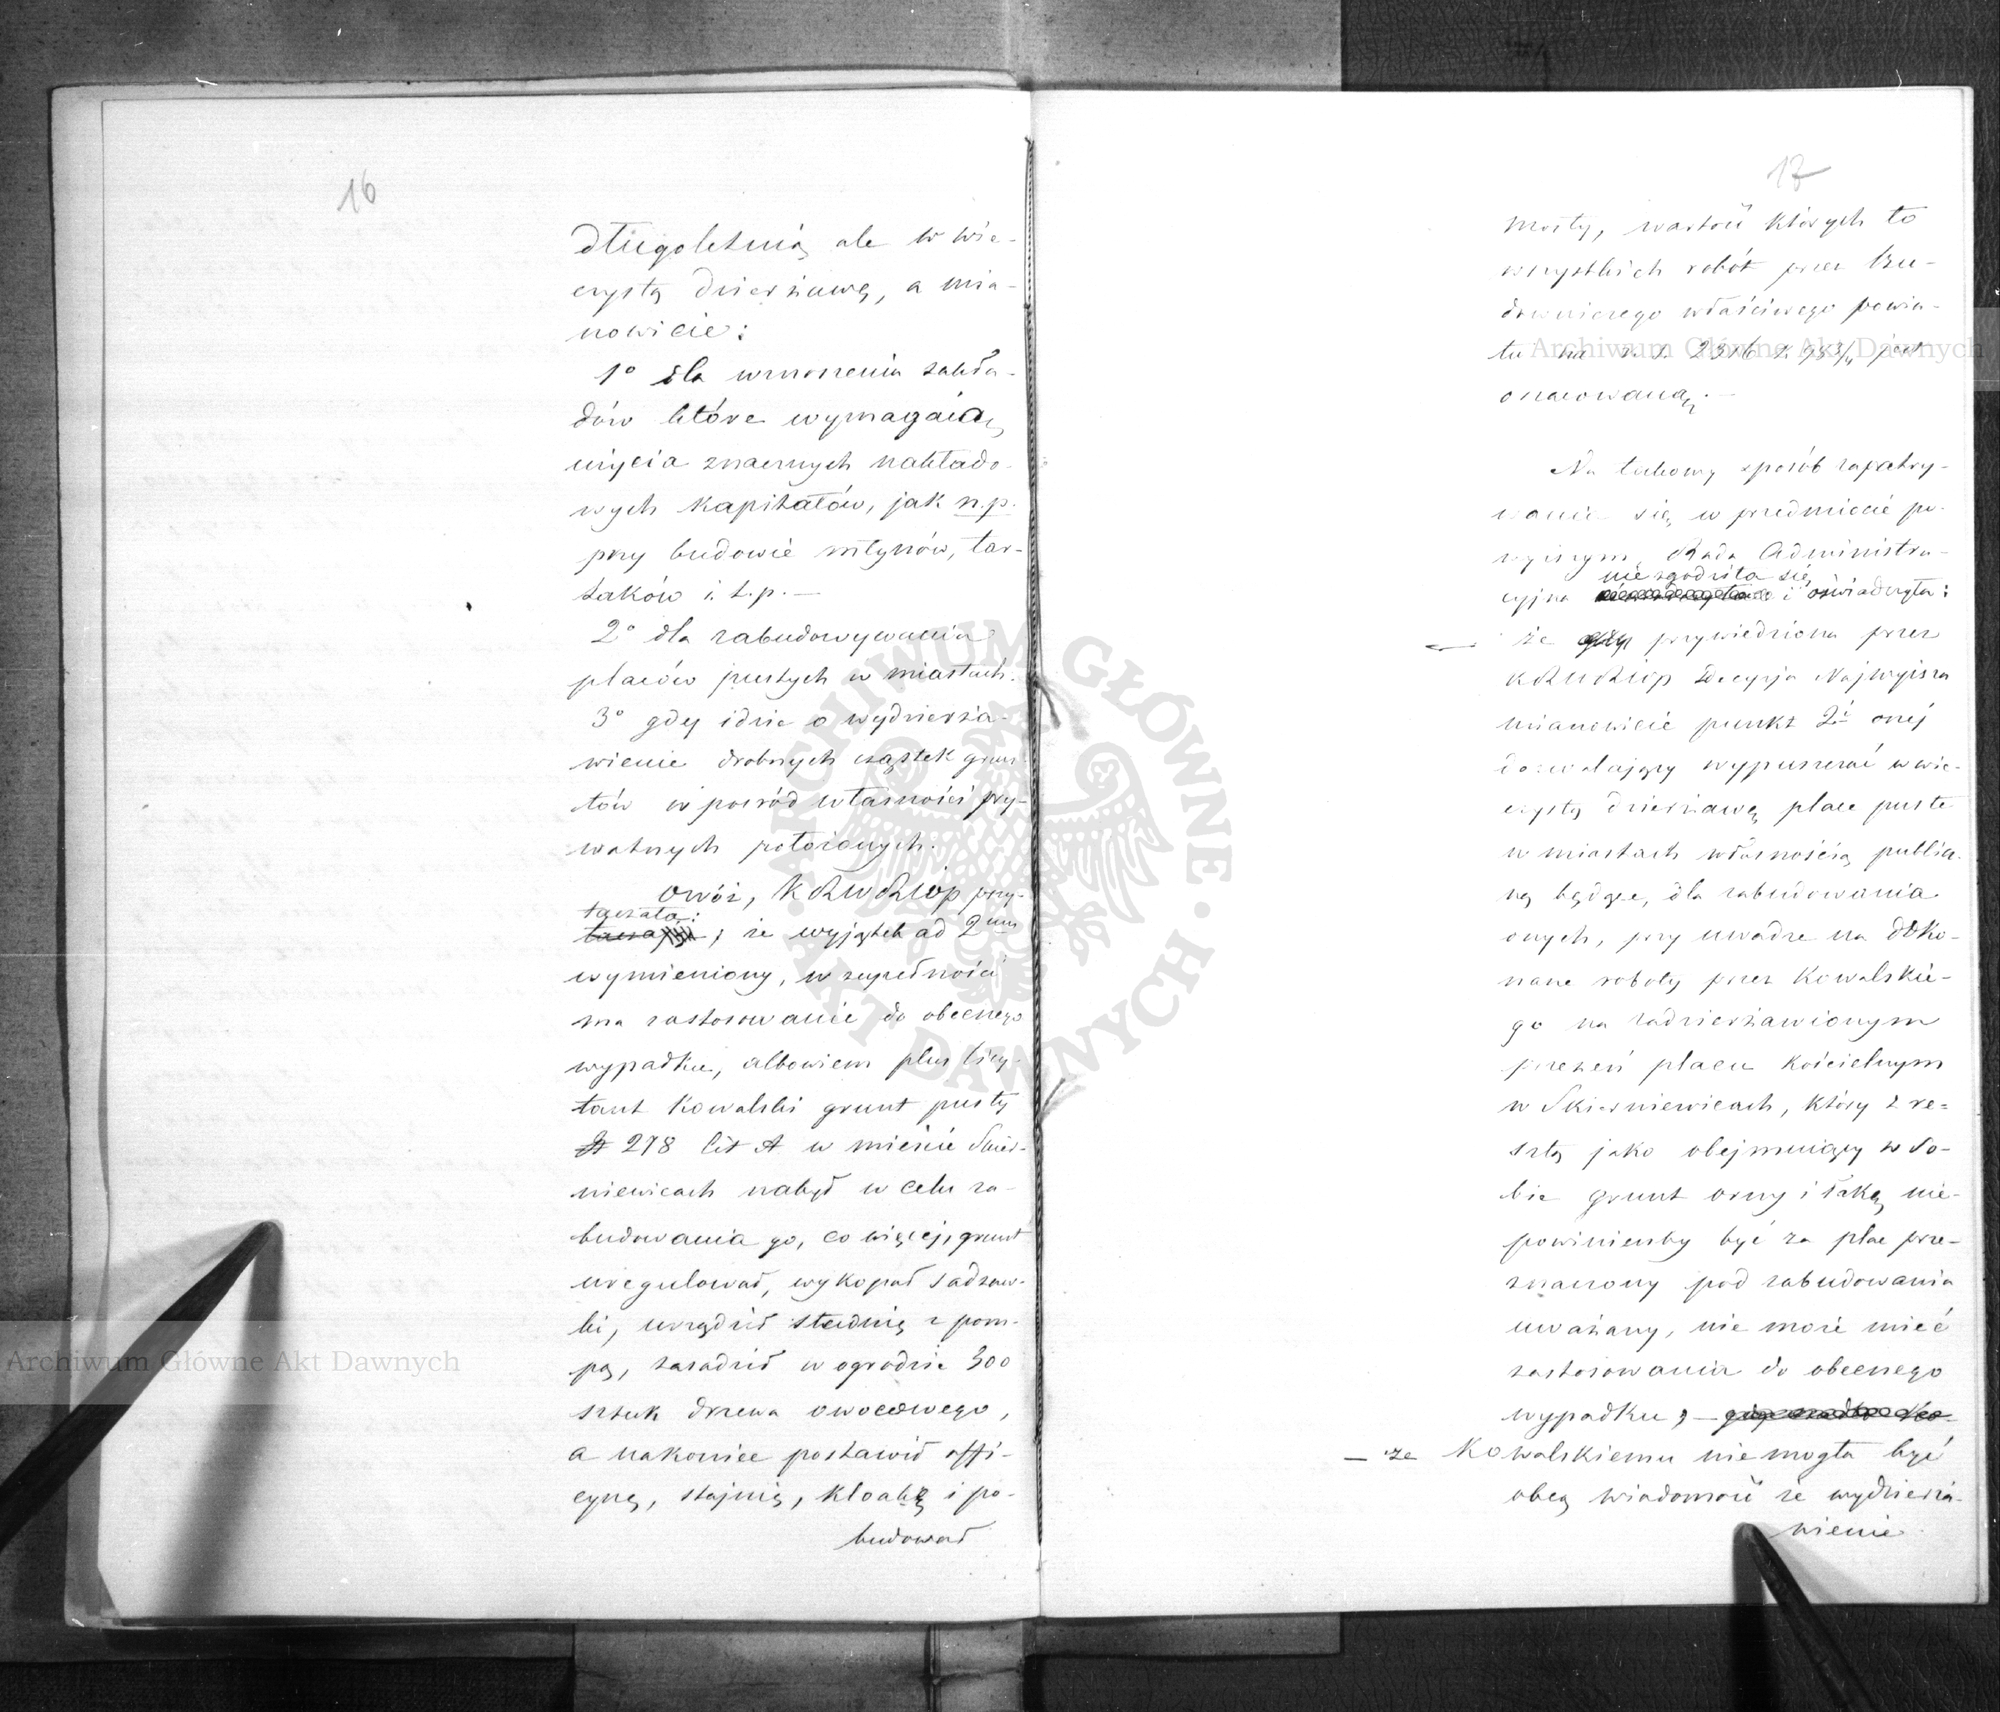 16
długoletnią ale w wie-
czystą dzierżawę, a mia-
nowicie:
1° dla wznoszenia zakła-
dów które wymagaią
użycia znacznych nakłado-
wych kapitałów, jak n.p.
przy budowie młynów, tar-
taków i. t. p. —
2° dla zabudowywania
placów pustych w miastach.
3° gdy idzie o wydzierża-
wienie drobnych cząstek grun
tów w pośród własności pry-
watnych położonych.
Owóż, KRWRiOP przy-
taczała:
taczając; że wyjątek ad 2um
wymieniony, w zupełności
ma zastosowanie do obecnego
wypadku, albowiem plus licy-
tant Kowalski grunt pusty
N 278 lit A w mieście Skier-
niewicach nabył w celu za-
budowania go, co więcej, grunt
uregulował, wykopał sadzaw-
ki, urządził studnię z pom-
pą, zasadził w ogrodzie 300
sztuk drzewa owocowego,
a nakoniec postawił offi-
cynę, stajnię, kloakę i po-
budował
17
mosty, wartość których to
wszystkich robót przez Bu-
downiczego właściwego powia-
tu na r. s. 2316 k. 98 3/4 jest
oszacowaną. —
Na takowy sposób zapatry-
wania się w przedmiocie po-
wyższym, Rada Administra-
nie zgodziła się
cyjna i oświadczyła:
że przywiedziona przez
KRWRiOP Decyzja Najwyższa
mianowicie punkt 2i onej
dozwalający wypuszczać w wie-
czystą dzierżawę place puste
w miastach własnością publicz-
ną będące, dla zabudowania
onych, przy uwadze na doko-
nane roboty przez Kowalskie-
go na zadzierżawionym
przezeń placu Kościelnym
w Skierniewicach, który z re-
sztą jako obejmujący w so-
bie grunt orny i łąkę nie-
powinienby być za plac prze-
znaczony pod zabudowania
uważany, nie może mieć
zastosowania do obecnego
wypadku; —
— że Kowalskiemu niemogła być
obcą wiadomość że wydzierża-
wienie
Archiwum Główne Akt Dawnych
Archiwum Główne Akt Dawnych
ARCHIWUM GŁÓWNE
AKT DAWNYCH